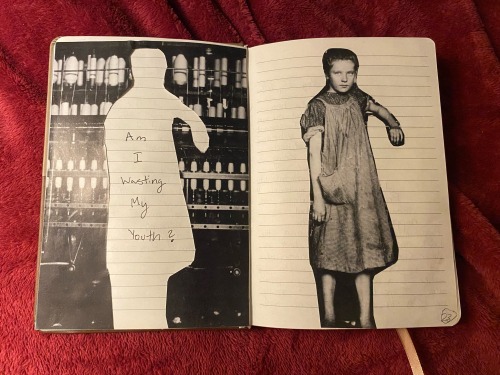 Am
I
Wasting
My
Youth?